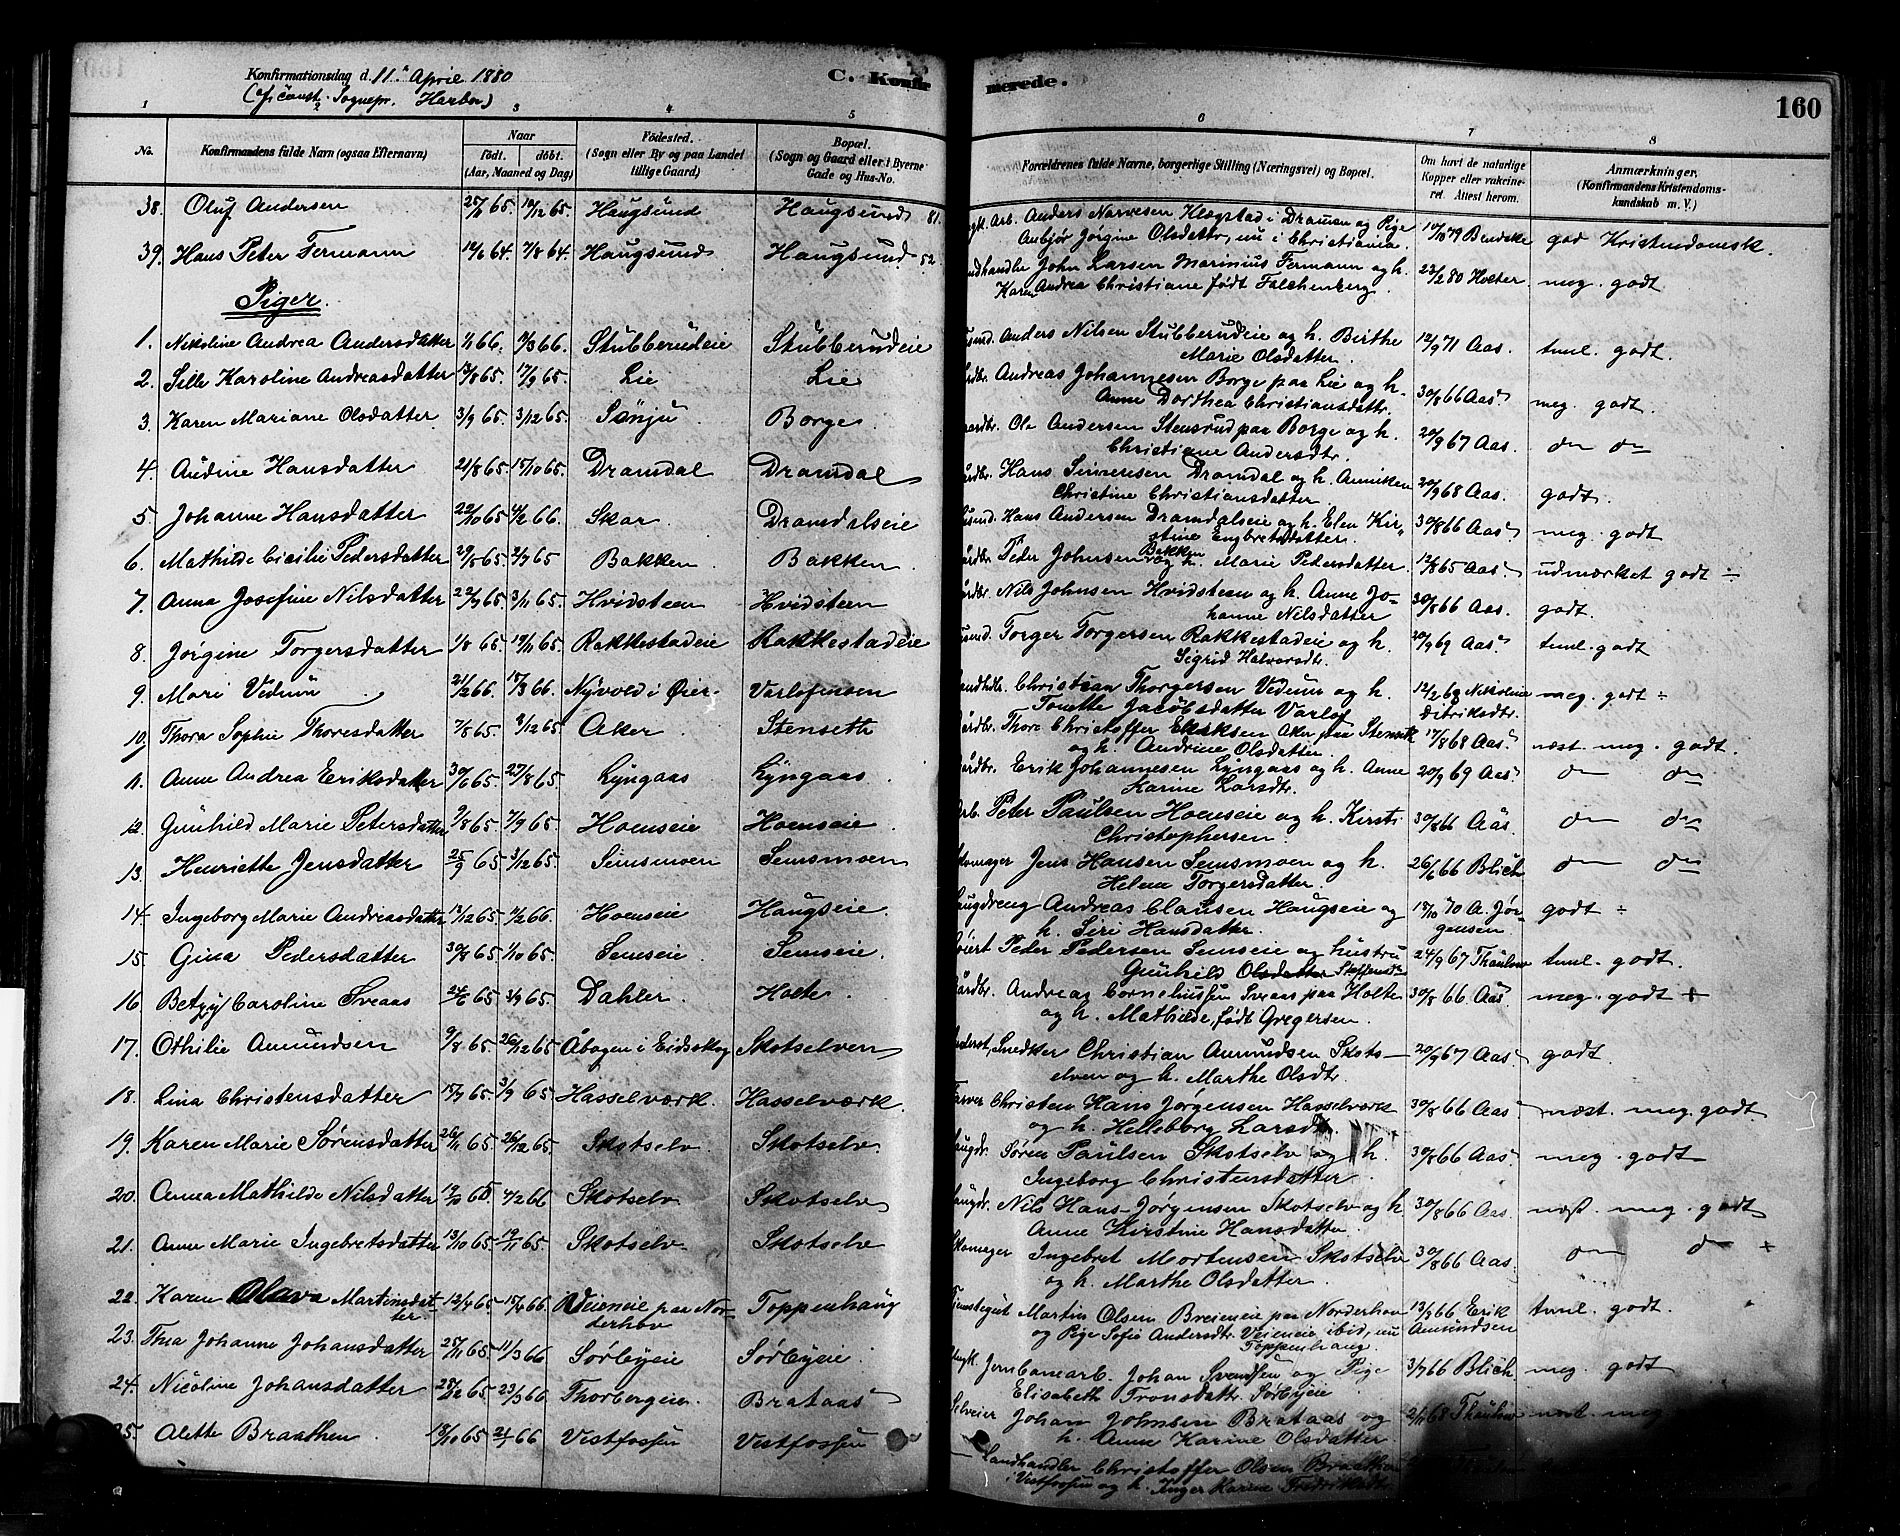 Konfirmationsdag d. 11. April 1880
C. Konfir merede.
160
Sognepr. Harboe)
1 3 4 5 6 7 8
No. Konfirmandens fulde Navn (ogsaa Efternavn) Naar født. døbt. (Aar, Maaned og Dag) Fødested. (Sogn eller By og paa Landet tillige Gaard) Bopæl. (Sogn og Gaard eller i Byerne Gade og Hus-No. Forældrenes fulde Navne, borgerlige Stilling (Næringsvei) og Bopæl. Om havt de naturlige Kopper eller vakcineret. Attest herom. Anmærkninger. (Konfirmandens Kristendomskundskab m. V.)
38. Oluf Andersen 65. 65. Haugsund Haugsund 81. Arb. Anders Narvesen Kløgstad i Dramen og Pige
Anbjør Jørgine Olsdatter, nu i Christiania. 79 Bendeke god Kristendomsk.
39. Hans Peter Fermann 64. 7/8 64. Haugsund Haugsund 52. Landhandler John Larsen Marinius Fermann og h.
Karen Andrea Christiane født Falchenberg. 23/2 80 Holter meg. godt
Piger.
1. Nikoline Andrea Andersdatter 66. 66. Stubberudeie Stubberudeie Anders Nilsen Stubberudeie og h. Birthe
Marie Olsdatter. 12/9 71 Aas. tml. godt.
2. Sille Karoline Andreasdatter 65. 17/9 65. Lie Lie Andreas Johannesen Borge paa Lie og h.
Anne Dorthea Christiansdatter. 30/8 66 Aas meg. godt.
3. Karen Mariane Olsdatter 3/9 65. 3/12 65. Sønju Borge Ole Andersen Stensrud paa Borge og h.
Christiane Andersdtr. 20/9 67 Aas do do
4. Audine Hansdatter 21/8 65. 15/10 65. Dramdal Dramdal Hans Simensen Dramdal og h. Anniken
Christine Christiansdatter. 20/9 68 Aas. godt.
5. Johanne Hansdatter 22/10 65 4/2 66. Skar. Dramdalseie Hans Andersen Dramdalseie og h. Elen Kir-
stine Engbretsdatter. 30/8 66 Aas meg. godt
6. Mathilde Cicilie Pedersdatter 29/5 65 2/7 65 Bakken Bakken. Peder Johnsen Bakken og h. Marie Pedersdatter. 65 Aas. udmærket godt ÷
7. Anna Josefine Nilsdatter 65. 3/11 65. Hvidsteen Hvidsteen Nils Johnsen Hvidsteen og h. Anne Jo-
hanne Nilsdatter 30/8 66 Aas. godt.
8. Jørgine Torgersdatter 1/8 65. 19/11 65. Rakkestadeie Rakkestadeie Torger Torgersen Rakkestadeie og h.
Sigrid Halvorsdtr. 20/9 69 Aas. tml. godt
9. Mari Vedum 21/2 66. 66. Nyvold i Øier Varlofmoen Christian Thorgersen Vedum og h.
Tonette Jacobsdatter Varlof 12/2 Nikoline Ditriksdtr. meg. godt ÷
10. Thora Sophie Thoresdatter 7/8 65. 3/12 65. Aker. Stenseth Thore Christoffer Eriksen Aker paa
og h. Andrine Olsdatter. 17/8 68 Aas næst meg. godt.
11. Anne Andrea Eriksdatter 65. 27/8 65. Lyngaas Lyngaas. Erik Johannesen Lyngaas og h. Anne
Karine Larsdtr. 20/9 69 Aas do do
12. Gunhild Marie Petersdatter 9/8 65. 7/9 65. Hoenseie Hoenseie. Arb. Peter Paulsen Hoenseie og h. Kirsti
Christophersen. 30/8 66 Aas. do do
13. Henriette Jensdatter 25/9 65. 3/12 65. Semsmoen Semsmoen Skomager Jens Hansen Semsmoen og h.
Helene Torgersdatter. 26/6 66 Blich do do
14. Ingeborg Marie Andreasdatter 65. 66. Hoenseie Haugseie. Laugdreng Andreas Clausen Haugseie og
h. Siri Hansdatter. 18/10 70 A. Jør-
gensen godt ÷
15. Gina Pedersdatter 65. 1/10 65. Semseie Semseie Peder Pedersen Semseie og hustru
Gunhild Olsdatter Steffensdtr 24/9 67 Thaulow tml. godt.
16 Betzy Caroline Sveaas 65 3/9 65. Dahler. Holte. Andreas Corneliussen Sveaas paa Holte
og h. Mathilde, født Gregersen. 30/8 66. Aas meg. godt +
17. Othilie Amundsen 9/8 65. 26/12 65 Åbogen i Eidskog Skotselven Snedker Christian Amundsen Skots-
elven og h. Marthe Olsdtr. 20/9 67 Aas godt.
18. Lina Christensdatter 65. 3/9 65. Hasselværk. Hasselværk. Farver Christen Hans Jørgensen Hasselværk
og h. Helleborg Larsdtr 30/8 66 Aas næst. meg. godt
19. Karen Marie Sørensdatter 26/11 65. 26/12 65. Skotselv. Skotselv. Søren Paulsen Skotselv og h.
Ingeborg Christensdatter 30/8 66 Aas. meg. godt
20. Anna Mathilde Nilsdatter 65 4/2 66 Skotselv Skotselv Nils Hans Jørgensen Skotselv og h
Anne Kirstine Hansdatter 30/8 66 Aas. næst. meg. godt
21. Anne Marie Ingebretsdatter 13/10 65. 19/11 65. Skotselv Skotselv Skomager Ingebret Mortensen Skotselv
og h. Marthe Olsdatter. 30/8 66 Aas. do do +
22. Karen Olava Martinsdat-
ter. 13/4 65 66. Veieneie paa Nor-
derhov Toppenhaug Tjenestegut Martin Olsen Breieneie paa Norderhov
og Pige Sofie Andersdtr. Veieneie ibid, nu
Toppenhaug. 13/9 66 Erik
Amundsen tml. godt.
23. Thea Johanne Johansdatter 25/11 65. 11/3 66 Sørbyeie Sørbyeie. Jernbanearb. Johan Svendsen og Pige
Elisabeth Tronsdatter Sørbyeie 3/7 66 Blich. meg. godt
24. Nicoline Johansdatter 65. 23/3 66 Thorbergeie. Brataas Selveier Johan Johnsen Brataas og
h. Anne Karine Olsdatter 68 Thaulow næst. meg
25. Alette Braathen 18/10 65 66 Vestfossen Vestfossen Landhandler Christoffer Olsen Braathen
Vestfossen og h. Inger Karine Fredriksdtr